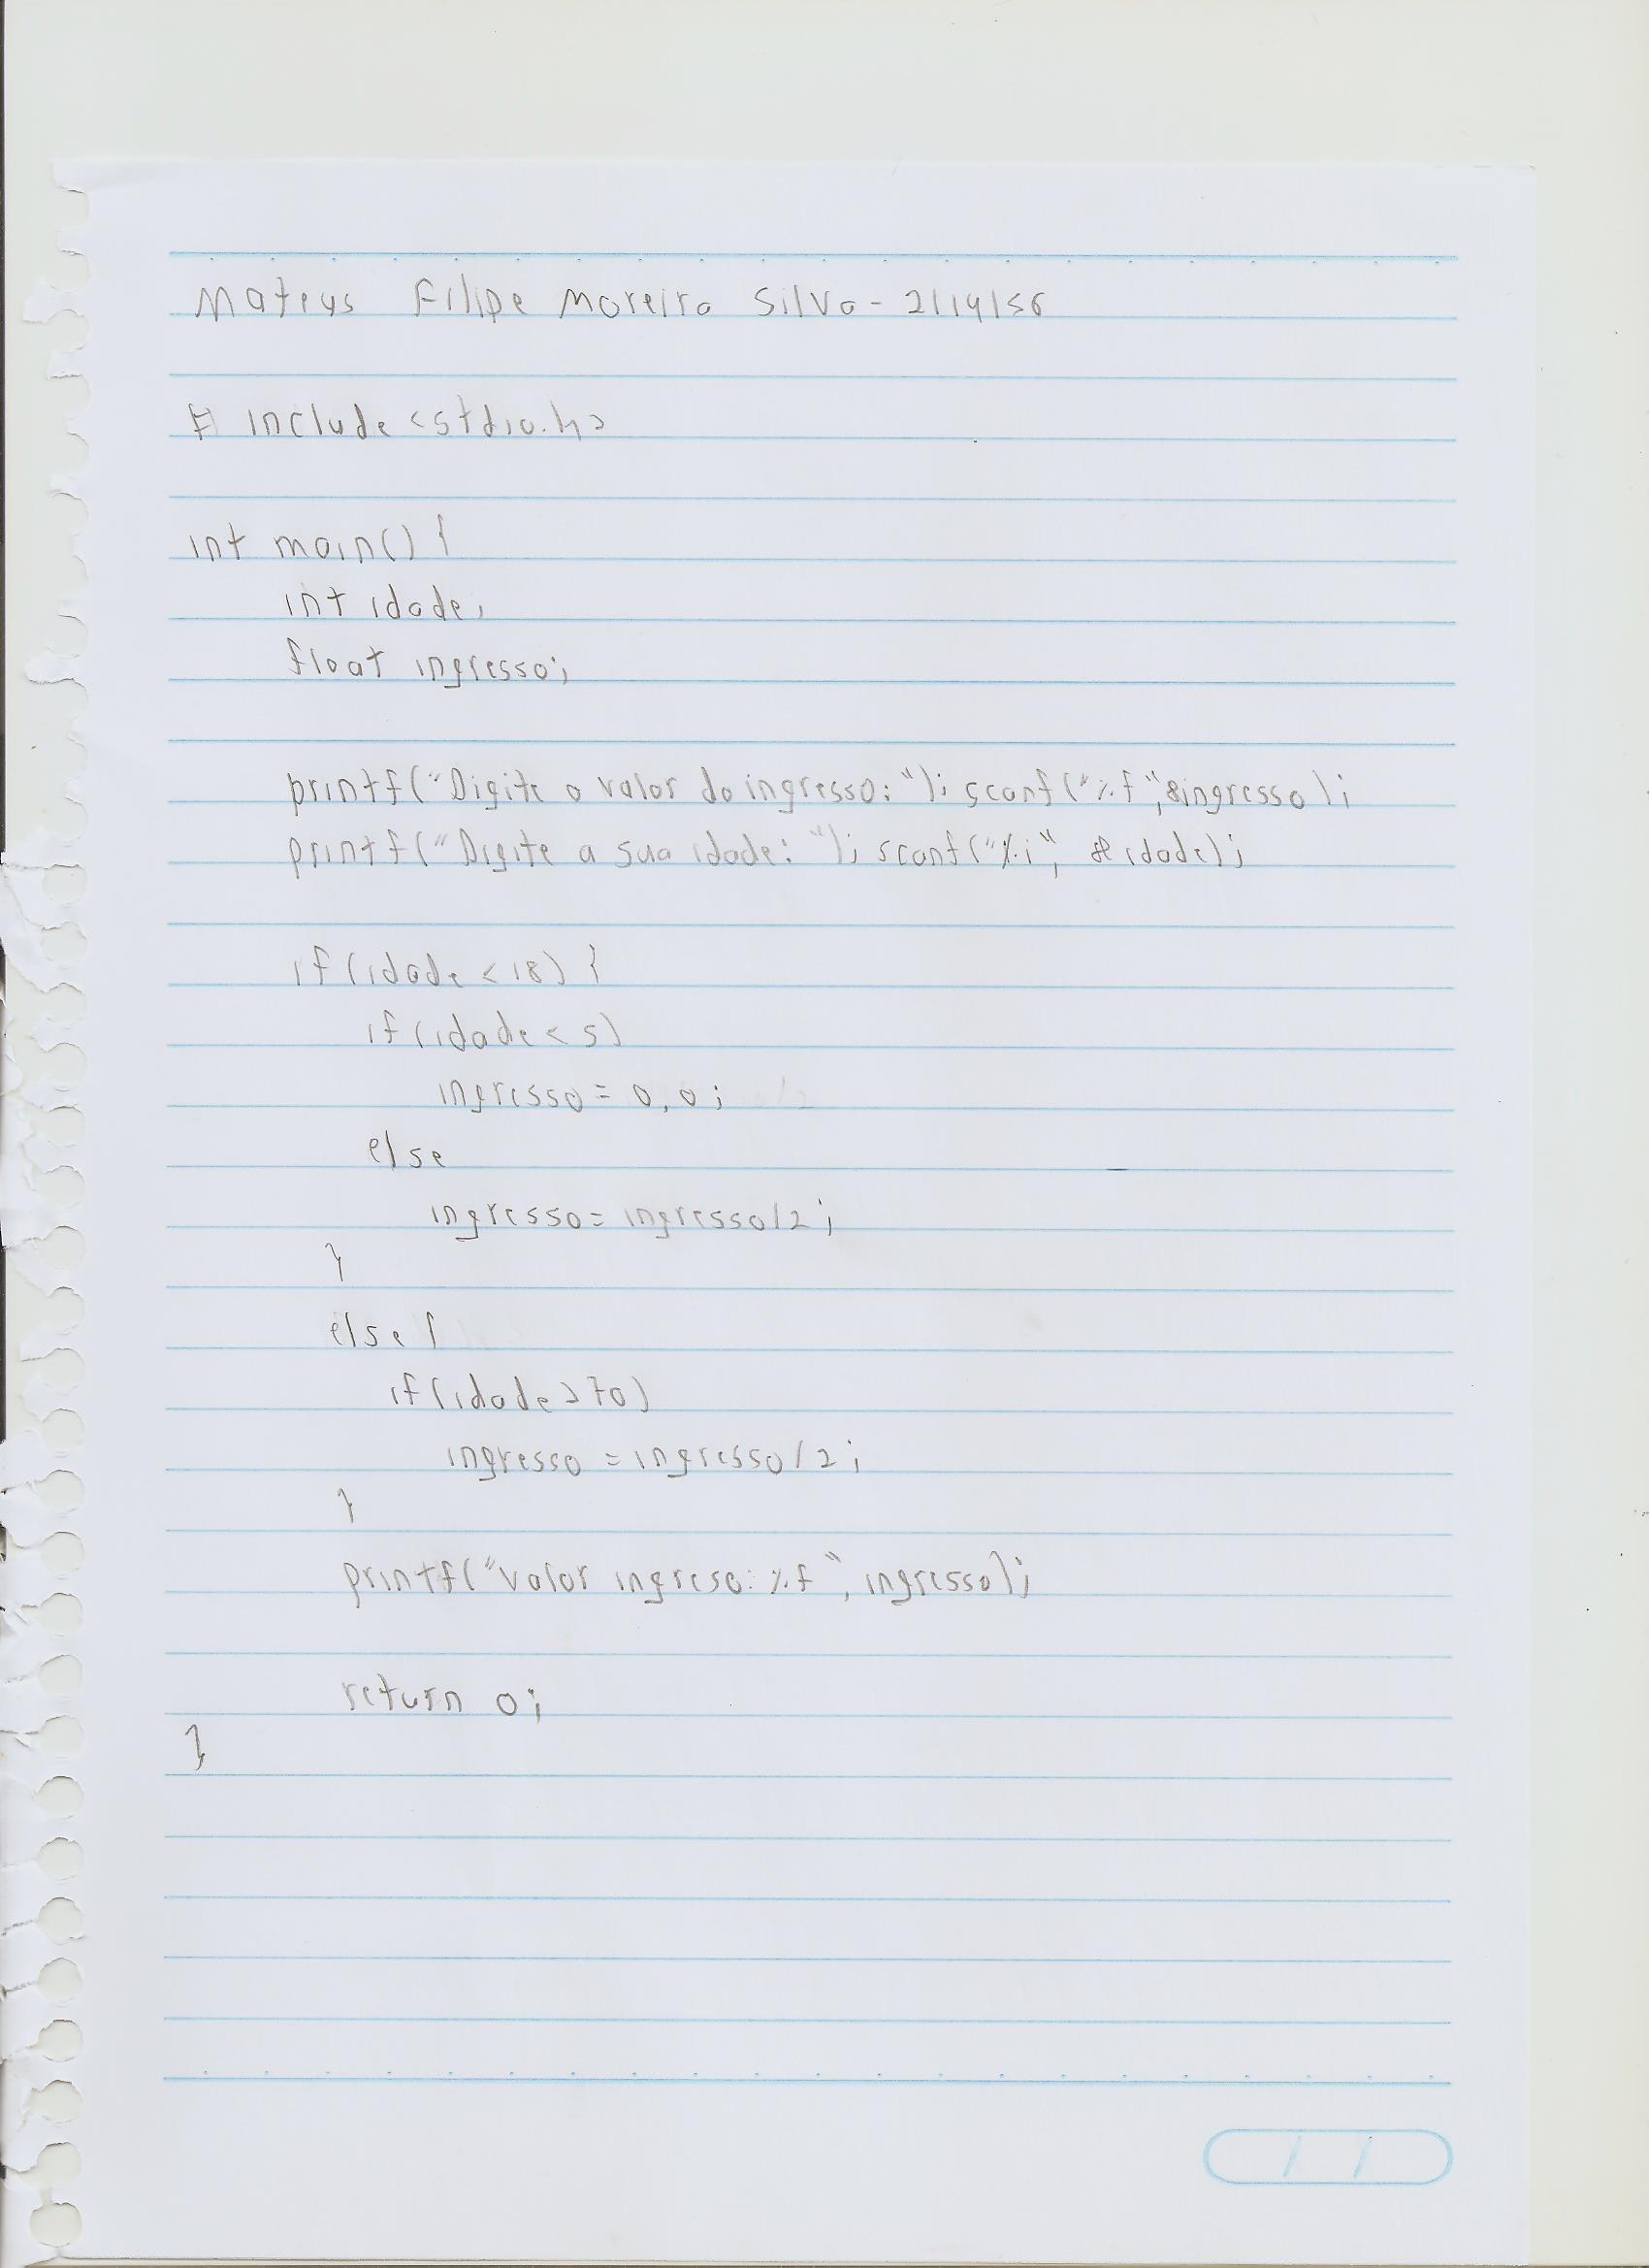 Mateus Filipe Moreira Silva - 2114156
# include <stdio.h>
int main() {
int idade;
float ingresso;
printf("Digite o valor do ingresso: "); scanf("%f", &ingresso);
printf("Digite a sua idade: "); scanf("%i", &idade);
if(idade < 18) {
if(idade < 5)
ingresso = 0,0;
else
ingresso = ingresso/2;
}
else {
if(idade > 70)
ingresso = ingresso/2;
}
printf("Valor ingreso: %f", ingresso);
return 0;
}